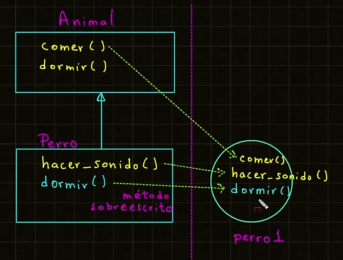 Animal
comer()
dormir()
Perro
hacer_sonido()
dormir()
método
sobreescrito
comer()
hacer_sonido()
dormir()
perro1